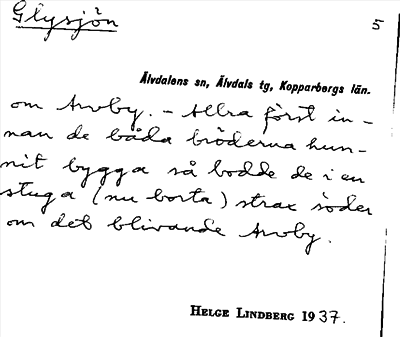 Glysjön
5
Älvdalens sn, Älvdals tg, Kopparbergs län.
om Avoby. – Allra först in-
nan de båda bröderna hun-
nit bygga så bodde de i en
stuga (nu borta) strax söder
om det blivande Avoby.
HELGE LINDBERG 1937.